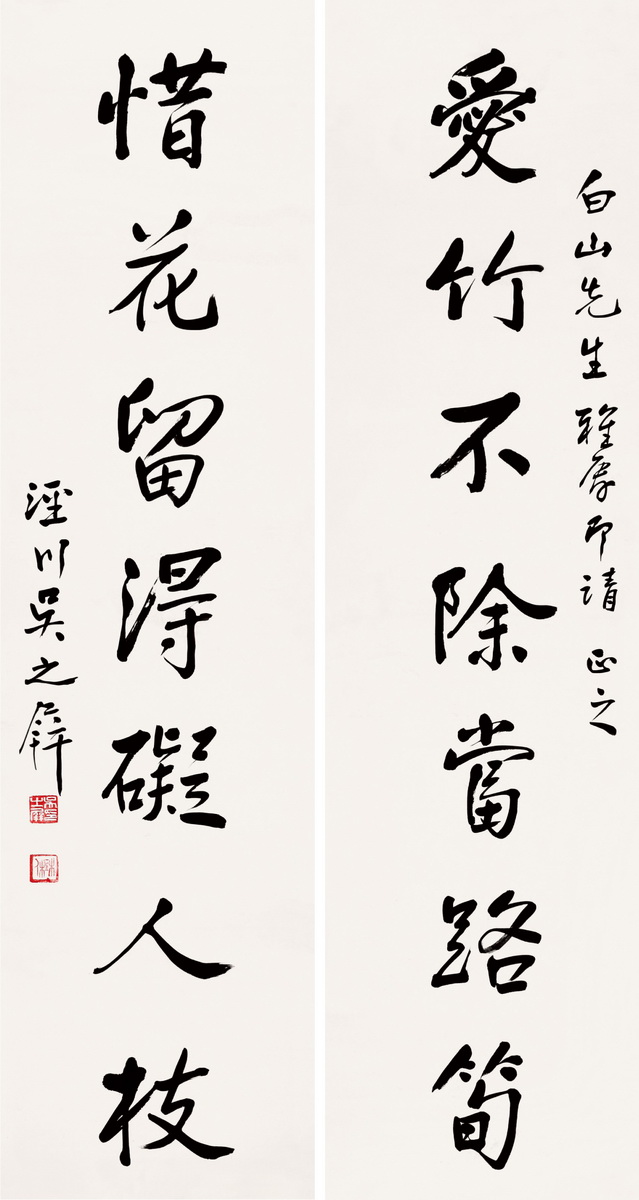 白山先生雅屬即請 正之
愛竹不除當路筍
惜花留得礙人枝
涇川吳之